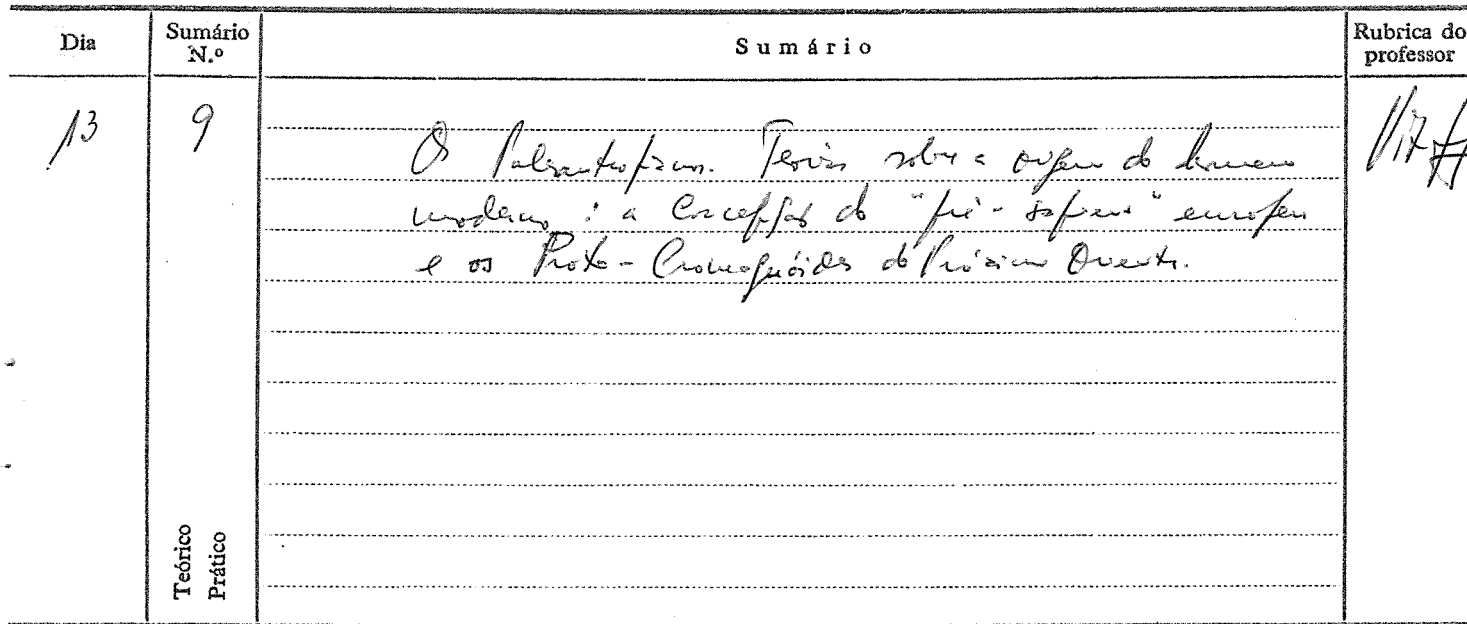 Dia
Sumário N.º
Sumário
Rubrica do professor
13
9
Os Paleantropianos. Teorias sobre a origem do homem
moderno: a Concepção do "pré-sapiens" europeu
e os Proto-Cromagnóides do Próximo Oriente.
Teórico
Prático